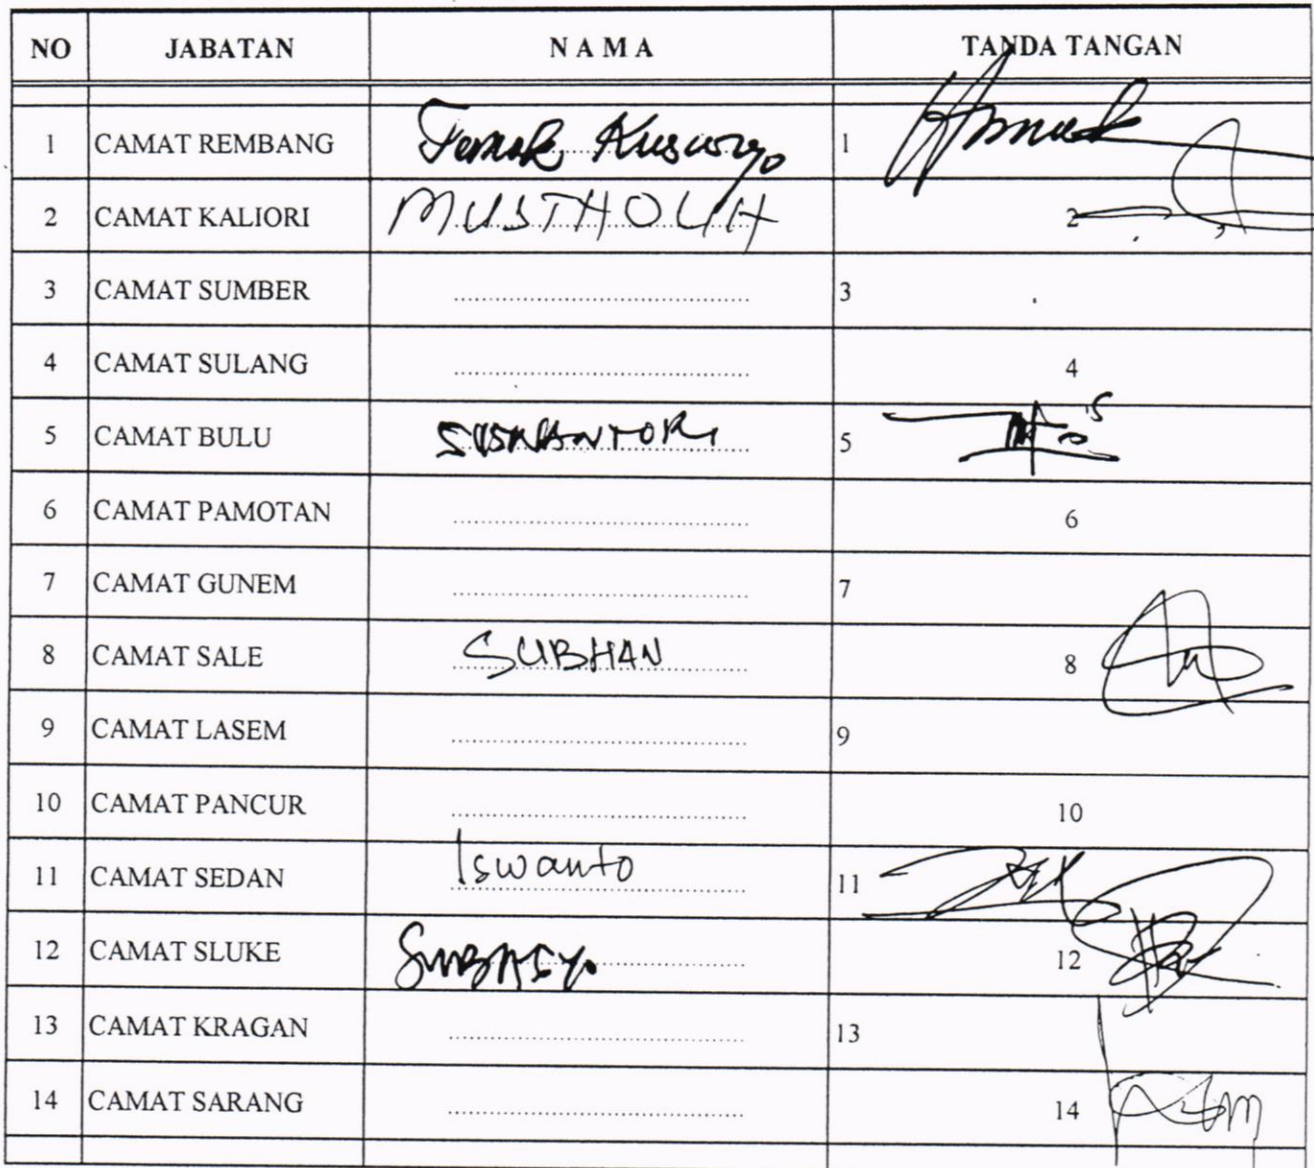 NO JABATAN N A M A TANDA TANGAN
1 CAMAT REMBANG Kusworyo 1
2 CAMAT KALIORI MUSTHOLIH 2
3 CAMAT SUMBER .......... 3
4 CAMAT SULANG .......... 4
5 CAMAT BULU 5
6 CAMAT PAMOTAN .......... 6
7 CAMAT GUNEM .......... 7
8 CAMAT SALE SUBHAN 8
9 CAMAT LASEM .......... 9
10 CAMAT PANCUR .......... 10
11 CAMAT SEDAN Iswanto 11
12 CAMAT SLUKE 12
13 CAMAT KRAGAN .......... 13
14 CAMAT SARANG .......... 14